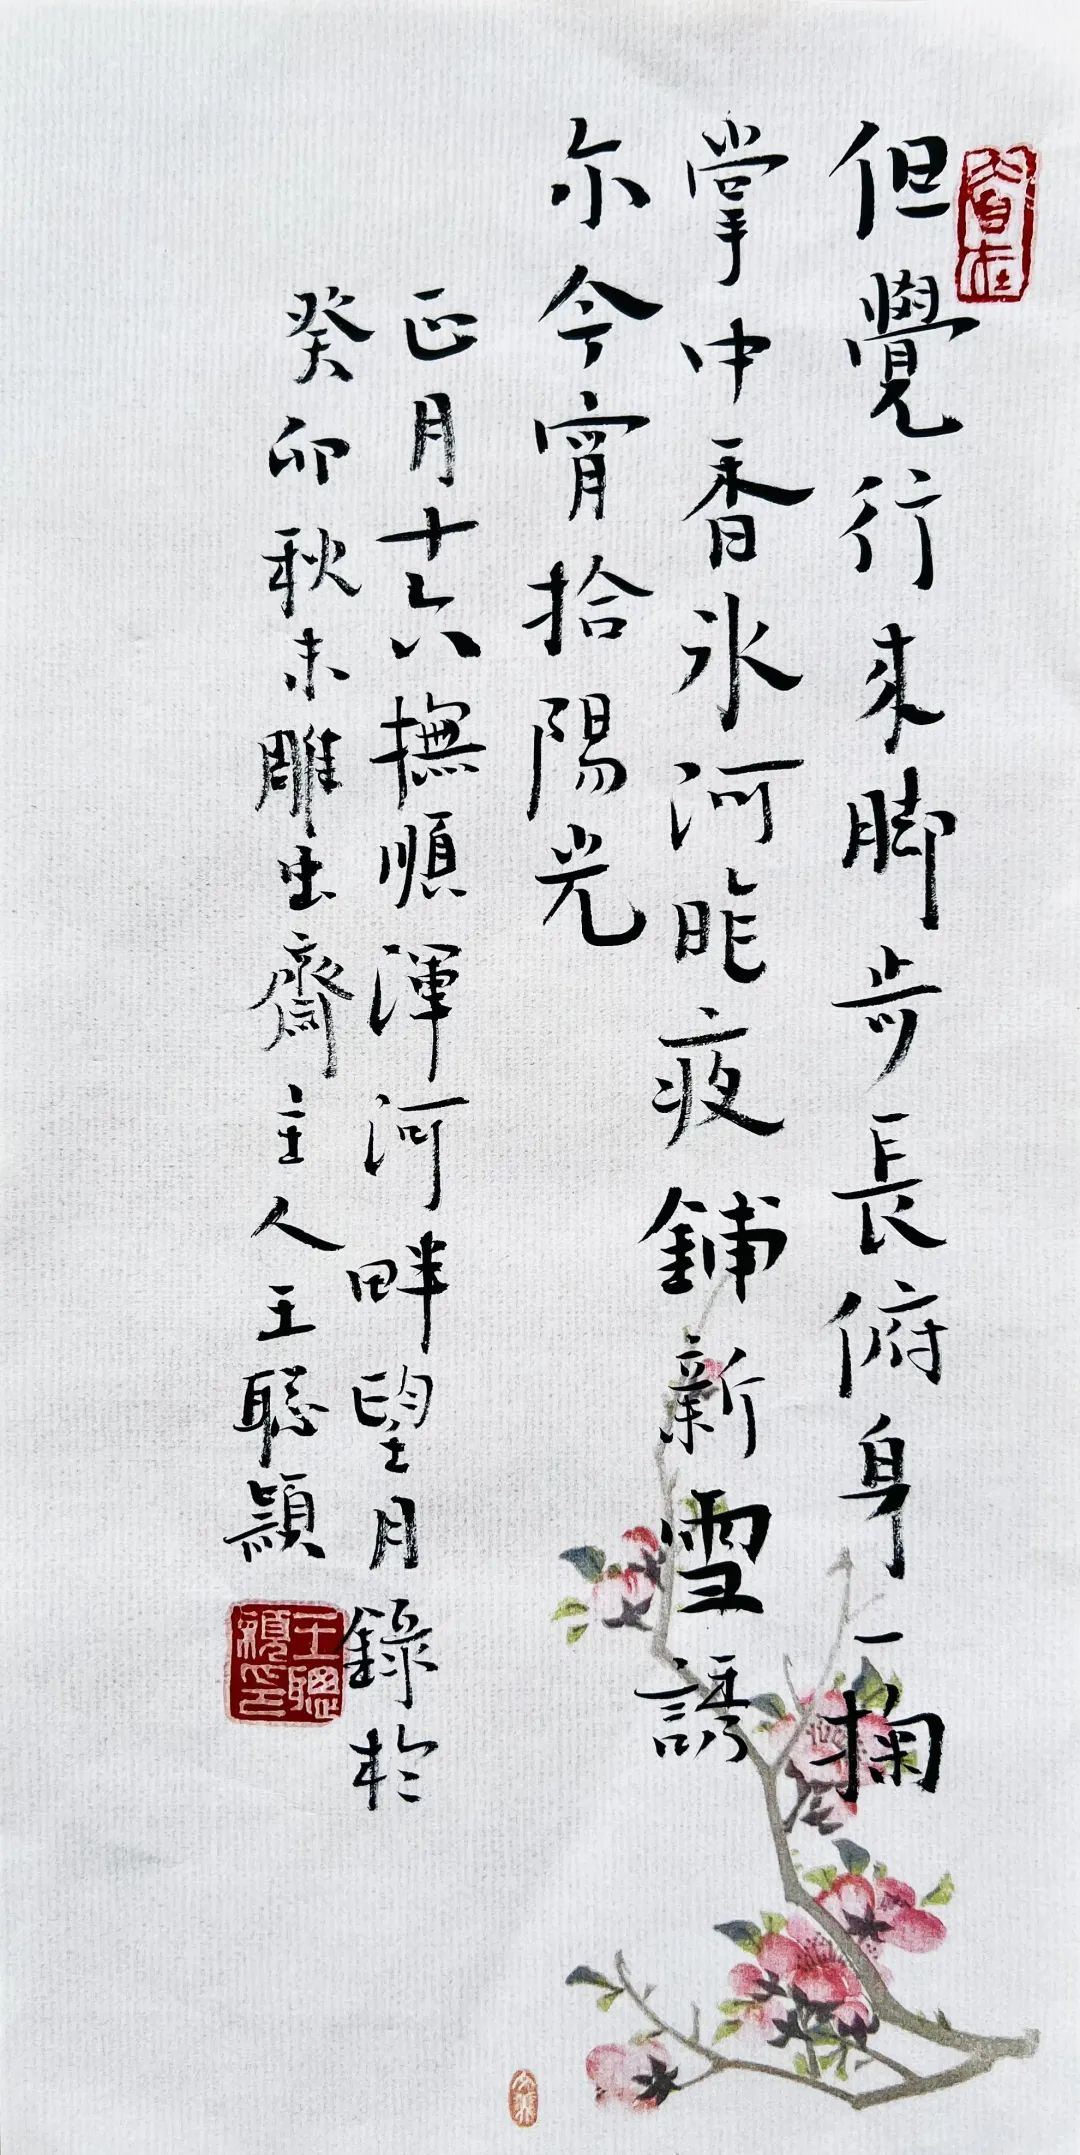 但覺行來脚步長俯身一掬
掌中香氷河昨夜鋪新雪誘
尓今宵拾陽光
正月十六撫順渾河畔望月錄於
癸卯秋末雕虫齋主人王聪穎
王聰穎印